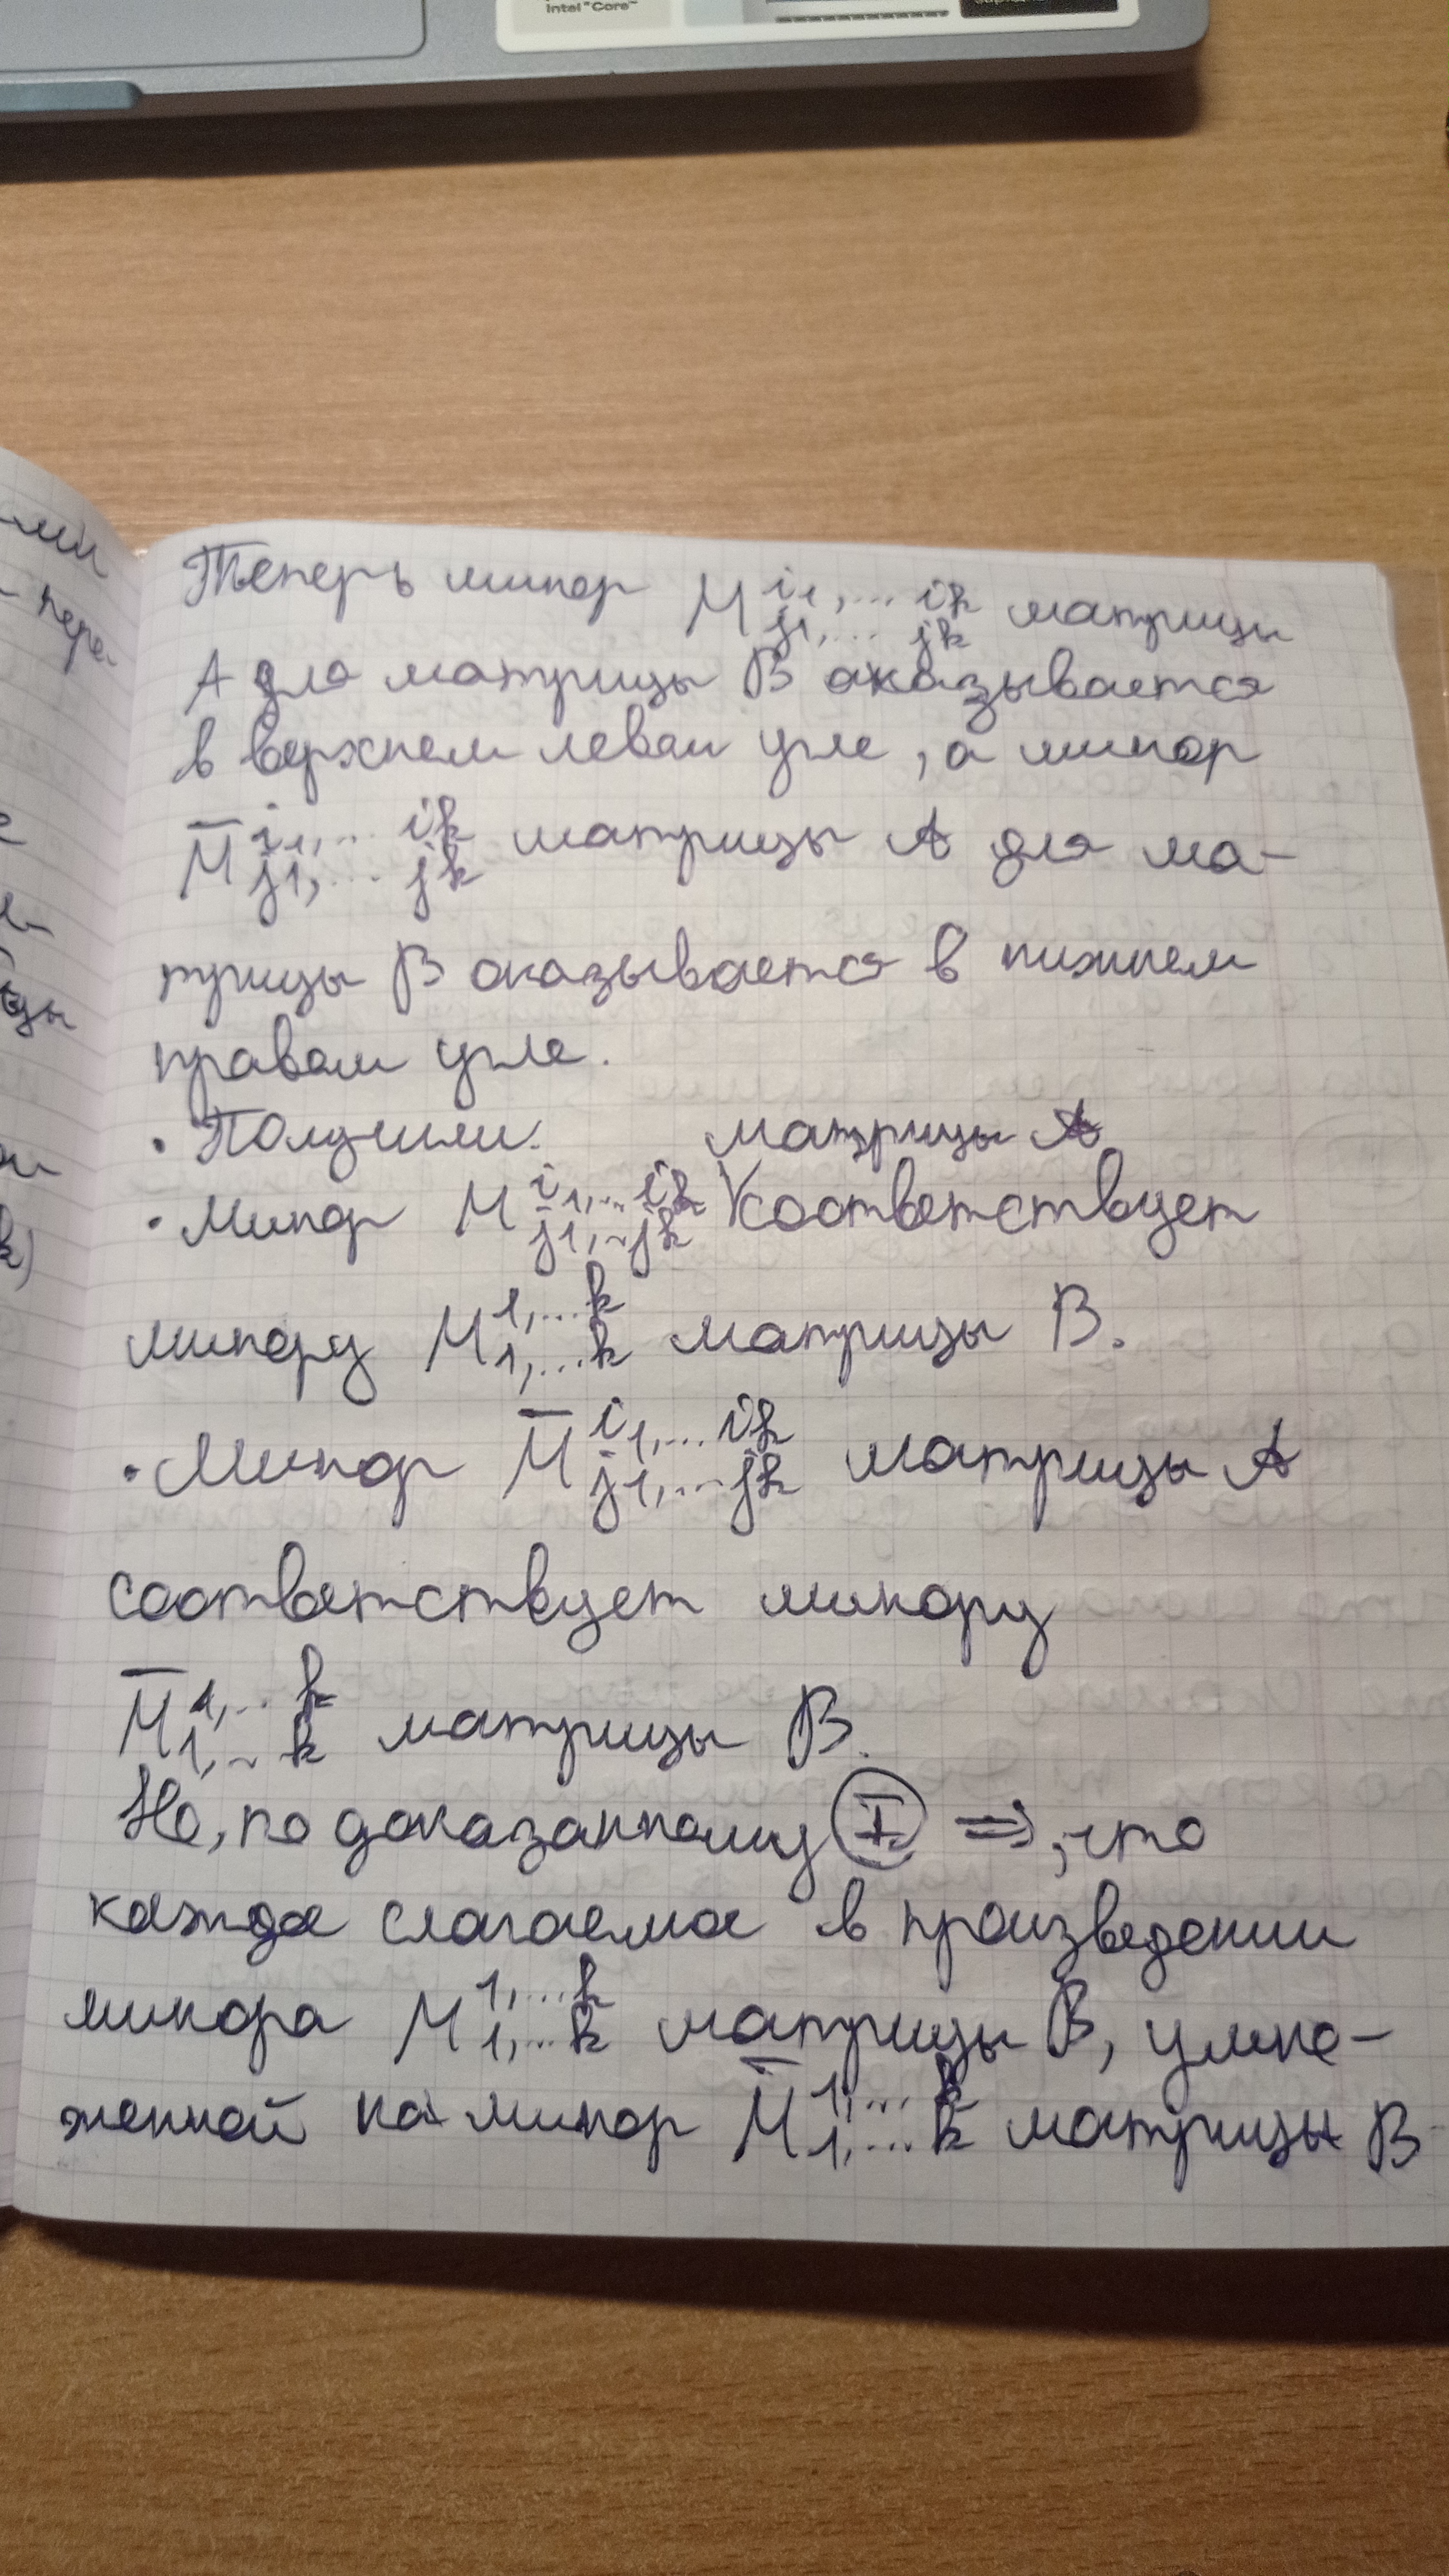 Intel "Core"
Теперь минор M^{i_1,... i_k}_{j_1,... j_k} матрицы
A для матрицы B оказывается
в верхнем левом угле, а минор
M̅^{i_1,... i_k}_{j_1,... j_k} матрицы A для ма-
трицы B оказывается в нижнем
правом угле.
• Получили: матрицы A
• Минор M^{i_1,...i_k}_{j_1,..j_k} V соответствует
минору M^{1,...k}_{1,...k} матрицы B.
• Минор M̅^{i_1,...i_k}_{j_1,...j_k} матрицы A
соответствует минору
M̅^{1,...k}_{1,..k} матрицы B.
Но, по доказанному (I) =>, что
каждое слагаемое в произведении
минора M^{1,...k}_{1,...k} матрицы B, умно-
женной на минор M̅^{1,...k}_{1,...k} матрицы B
мы
пере-
k)